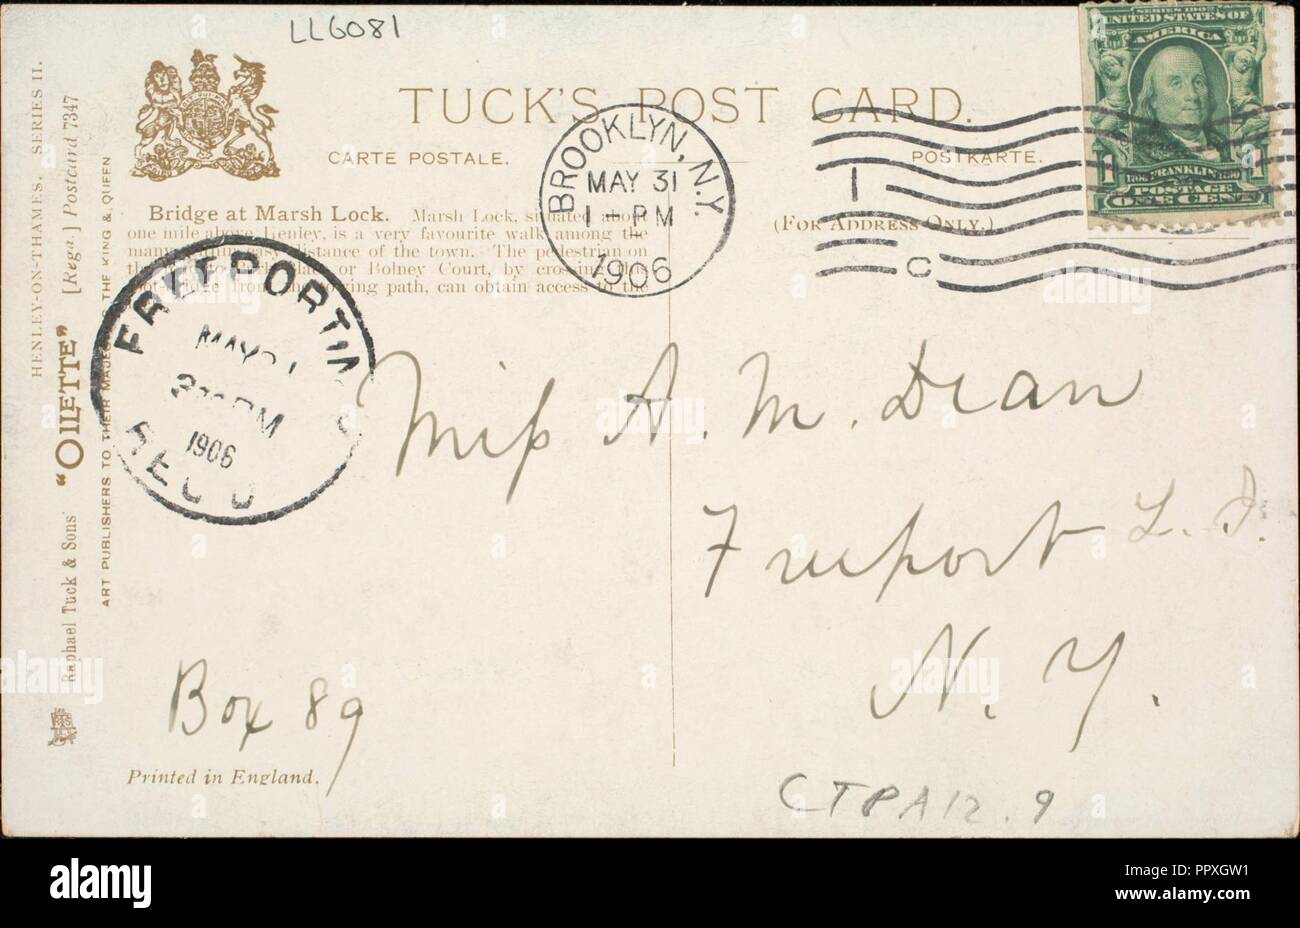 LL6081
TUCK'S POST CARD.
CARTE POSTALE.
POSTKARTE.
(FOR ADDRESS ONLY.)
SERIES 1902
UNITED STATES OF
AMERICA
1706 FRANKLIN 1790
1 1
POSTAGE
ONE CENT
BROOKLYN, N.Y.
MAY 31
1 - PM
1906
1
C
Bridge at Marsh Lock. Marsh Lock, situated about
one mile above Henley, is a very favourite walk among the
many within easy distance of the town. The pedestrian on
Place or Bolney Court, by crossing this
from the towing path, can obtain access to the
FREEPORT
MAY
PM
1906
REC'D
HENLEY-ON-THAMES. SERIES II.
Raphael Tuck & Sons' "OILETTE" [Regd.] Postcard 7347
ART PUBLISHERS TO THEIR MAJESTIES THE KING & QUEEN
Miss A. M. Dean
Freeport L. I.
N. Y.
Box 89
Printed in England.
CTPA12.9
alamy
alamy
Image ID: PPXGW1
www.alamy.com